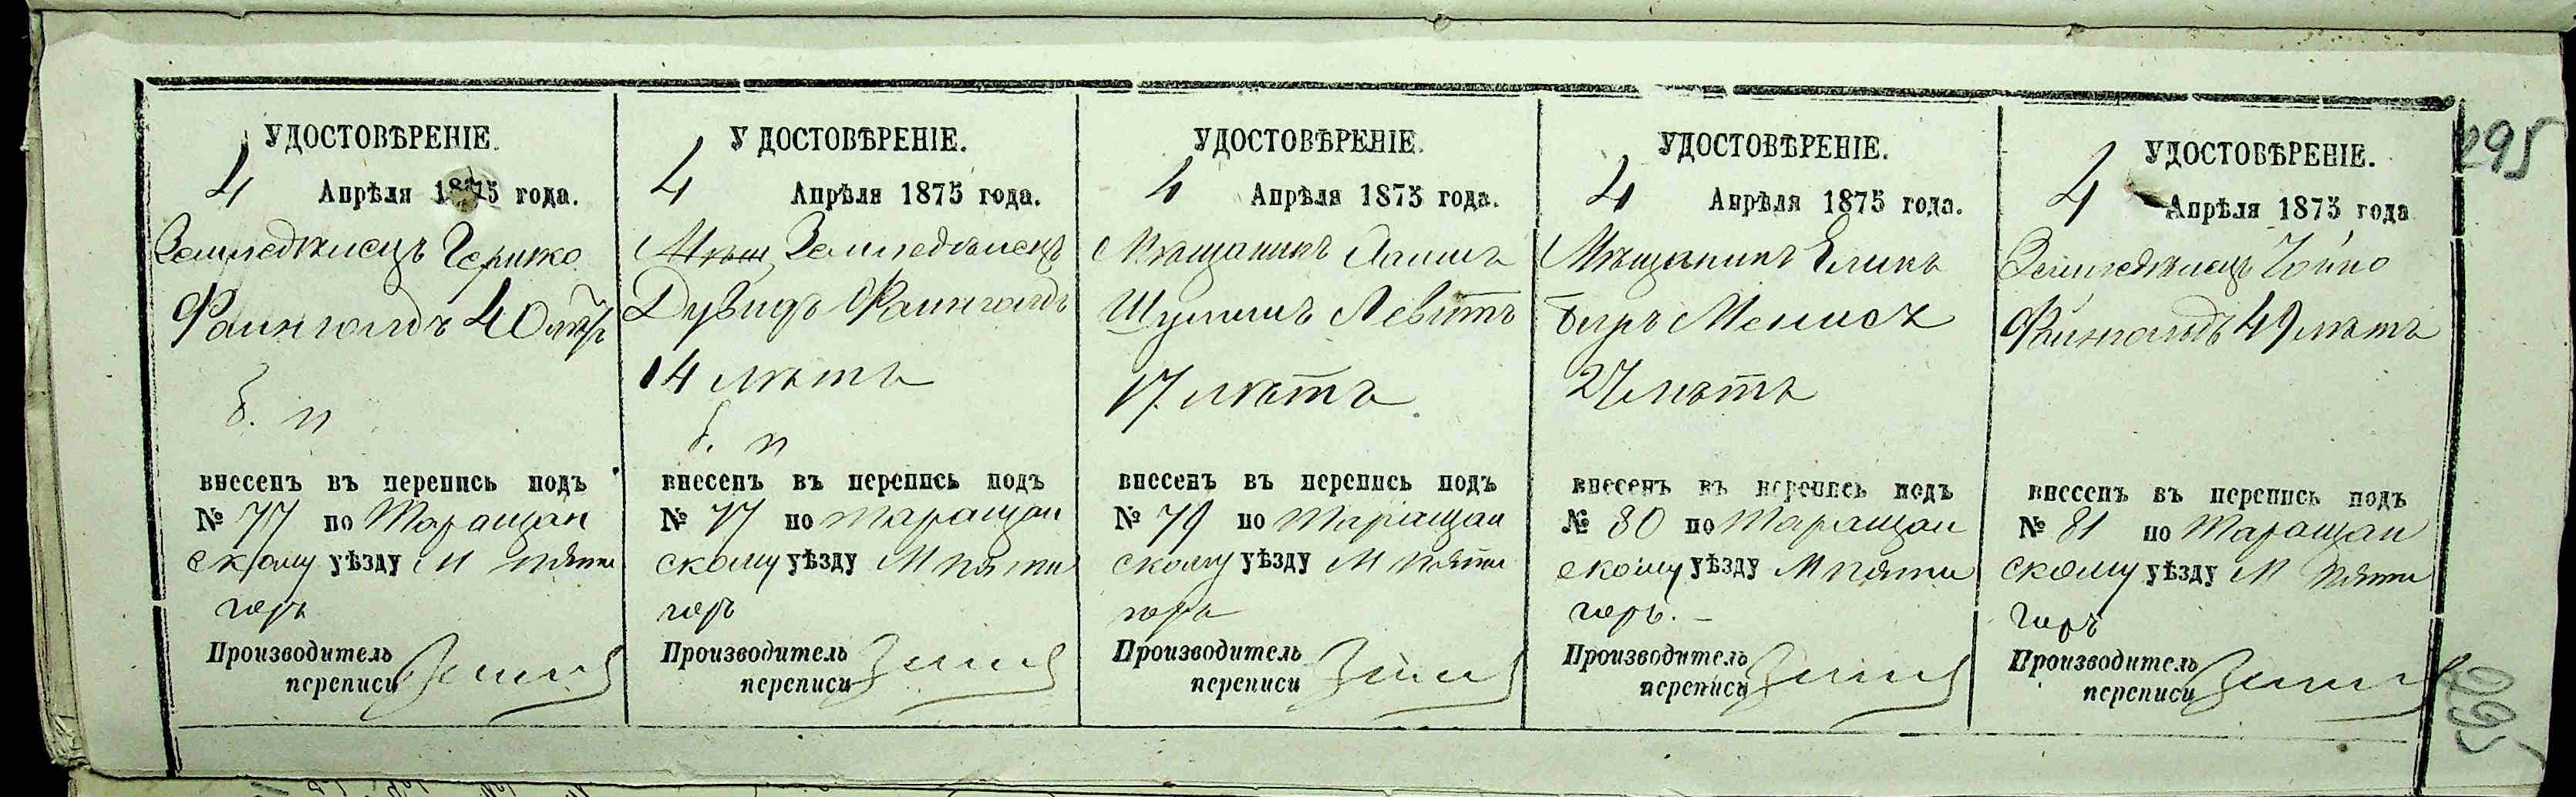 295
УДОСТОВѢРЕНІЕ.
4 Апрѣля 1875 года.
Земледѣлецъ Гершко
Фаинголдъ 40 лѣтъ
б. п
внесенъ въ перепись подъ
№ 77 по Таращан
скому уѣзду М Пяти
горъ
Производитель
переписи
У ДОСТОВѢРЕНІЕ.
4 Апрѣля 1875 года.
Мѣщ Земледѣлецъ
Дувидъ Фаинголдъ
14 лѣтъ
б. п
внесенъ въ перепись подъ
№ 77 по Таращан
скому уѣзду М Пяти
горъ
Производитель
переписи
УДОСТОВѢРЕНІЕ.
4 Апрѣля 1875 года.
Мѣщанинъ
Шулимъ Левитъ
17 лѣтъ
внесенъ въ перепись подъ
№ 79 по Таращан
скому уѣзду М Пяти
горъ
Производитель
переписи
УДОСТОВѢРЕНІЕ.
4 Апрѣля 1875 года.
Мѣщанинъ Еликъ
Беръ
27 лѣтъ
внесенъ въ перепись подъ
№ 80 по Таращан
скому уѣзду М Пяти
горъ. –
Производитель
переписи
УДОСТОВѢРЕНІЕ.
4 Апрѣля 1875 года
Земледѣлецъ
Фаинголдъ 49 лѣтъ
внесенъ въ перепись подъ
№ 81 по Таращан
скому уѣзду М Пяти
горъ
Производитель
переписи
295